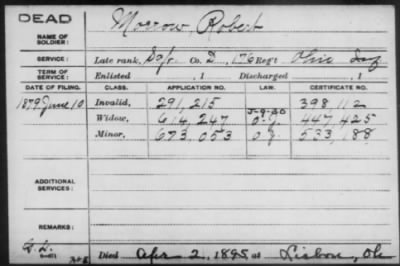 DEAD
NAME OF SOLDIER: Morrow, Robert
SERVICE: Late rank, Co. D, 176 Reg't Ohio Inf
TERM OF SERVICE: Enlisted , 1 Discharged , 1
DATE OF FILING. CLASS. APPLICATION NO. LAW. CERTIFICATE NO.
1879 June 10 Invalid, 291,215 398112
Widow, 614,247 447,425
Minor, 673,053 533,188
ADDITIONAL SERVICES:
REMARKS:
Died Apr 2, 1895, at Lisbon, Oh